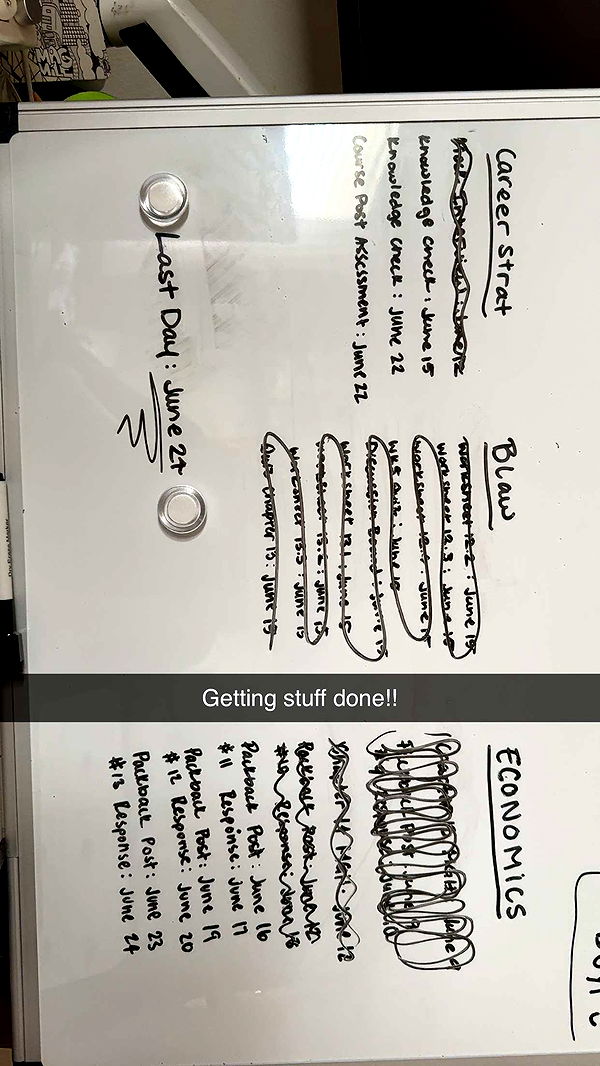 Career Strat
Knowledge Check: June 15
Knowledge Check: June 22
Course Post Assessment: June 22
Last Day: June 24
Blaw
Worksheet 12.2: June 15
Worksheet 12.3: June 15
Worksheet: June 15
Wk 5 Quiz: June
Discussion Board: June 15
Worksheet 13.1: June 15
Worksheet 13.2: June 15
Worksheet 13.3: June 15
Quiz Chapter 13: June 15
Getting stuff done!!
ECONOMICS
June 12
Packback Post: June 12
#10 Response: June 13
Packback Post: June 16
#11 Response: June 17
Packback Post: June 19
#12 Response: June 20
Packback Post: June 23
#13 Response: June 24